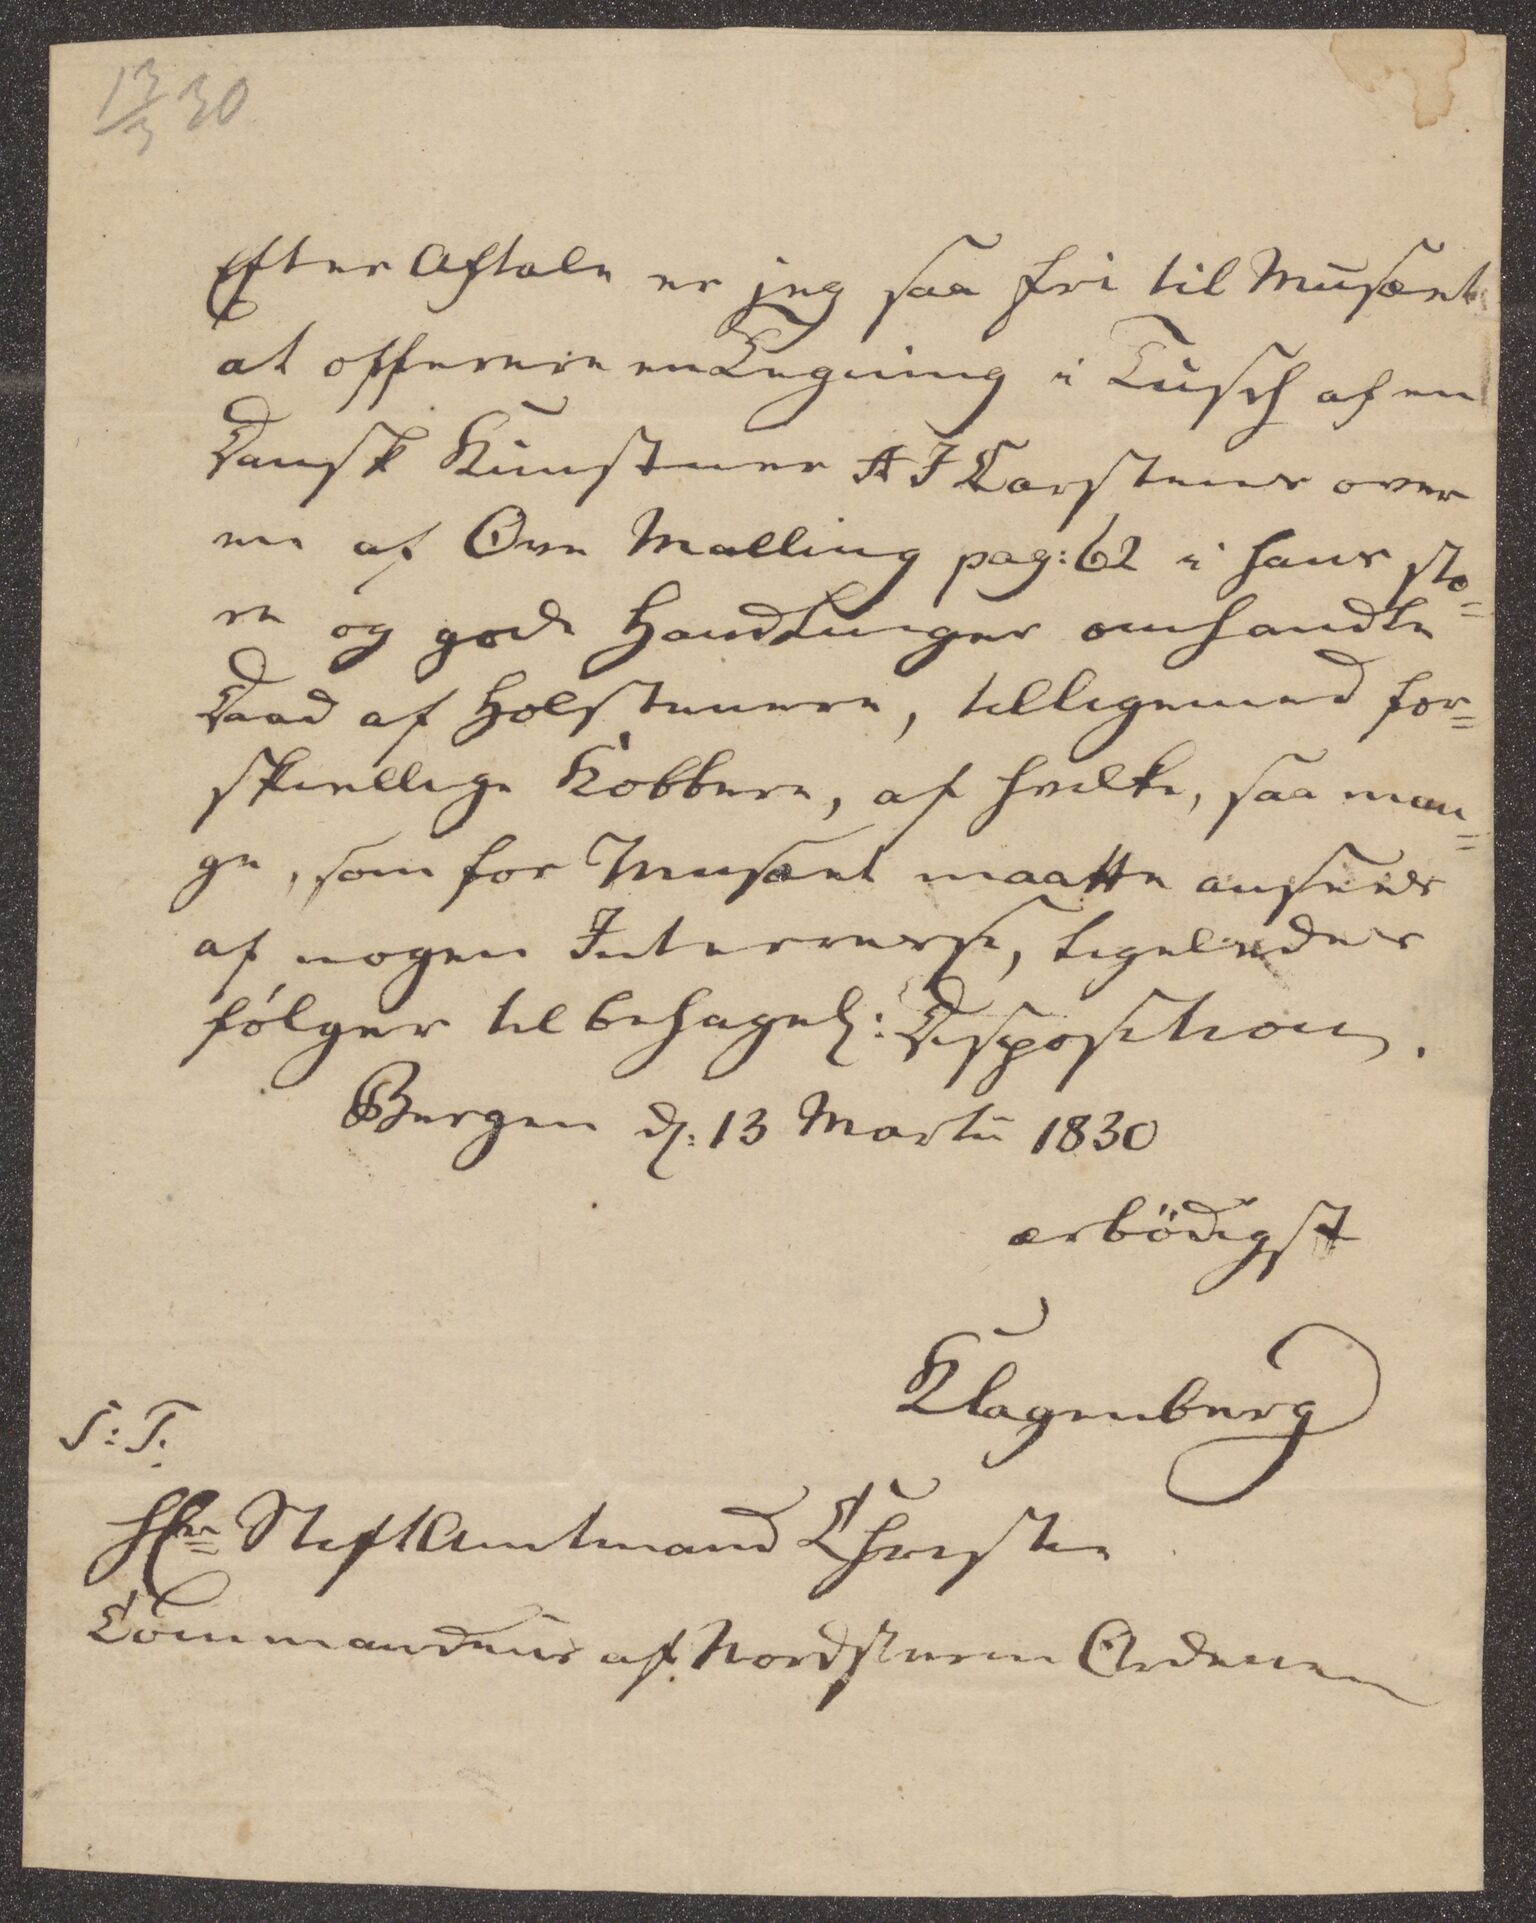 13/3 30
Efter Aftale er jeg saa fri til Musæet
at offerere en Tegning i Tusch af en
Dansk Kunstner A J Carstens over
en af Ove Malling pag: 62 i hans sto=
re og gode Handlinger omhandle
Daad af Holstenere, tilligemed for=
skiellige Kobbere, af hvilke, saa man=
ge, som for Musæet maatte ansees
af nogen Interresse, ligeledes
følger til behagel: Disposition.
Bergen d: 13 Martii 1830
ærbödigst
Klagenberg
S: T.
Hr Stiftamtmand Christie
Commandeur af Nordstiern Ordenen